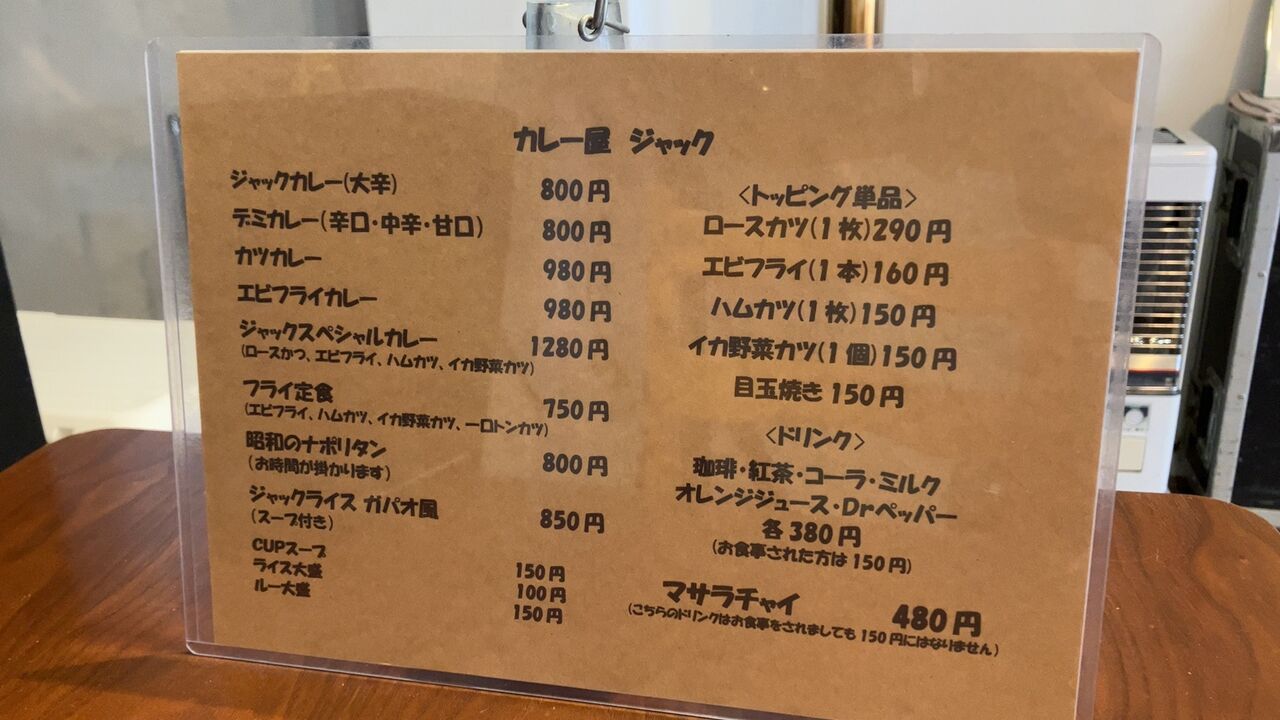 カレー屋 ジャック
ジャックカレー(大辛) 800円
デミカレー(辛口・中辛・甘口) 800円
カツカレー 980円
エビフライカレー 980円
ジャックスペシャルカレー 1280円
(ロースかつ、エビフライ、ハムカツ、イカ野菜カツ)
フライ定食 750円
(エビフライ、ハムカツ、イカ野菜カツ、一口トンカツ)
昭和のナポリタン 800円
(お時間が掛かります)
ジャックライス ガパオ風 850円
(スープ付き)
CUPスープ 150円
ライス大盛 100円
ルー大盛 150円
<トッピング単品>
ロースカツ(1枚)290円
エビフライ(1本)160円
ハムカツ(1枚)150円
イカ野菜カツ(1個)150円
目玉焼き150円
<ドリンク>
珈琲・紅茶・コーラ・ミルク
オレンジジュース・Drペッパー
各380円
(お食事された方は150円)
マサラチャイ 480円
(こちらのドリンクはお食事をされましても150円にはなりません)